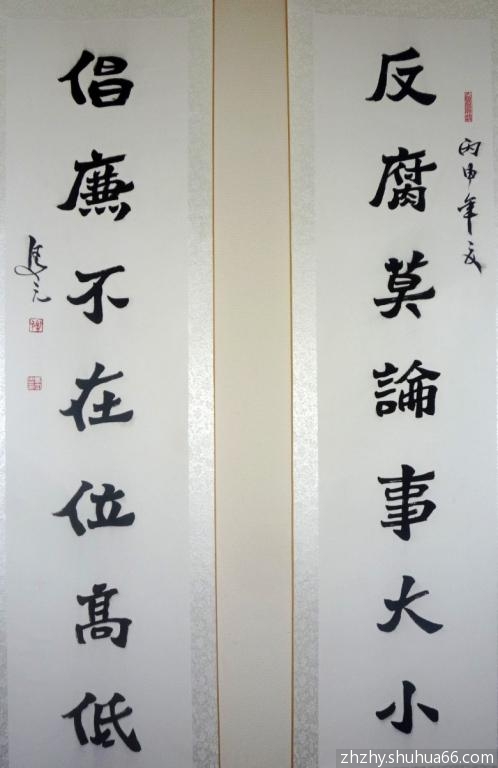 丙申年夏
反腐莫論事大小
倡廉不在位高低
zhzhy.shuhua66.com